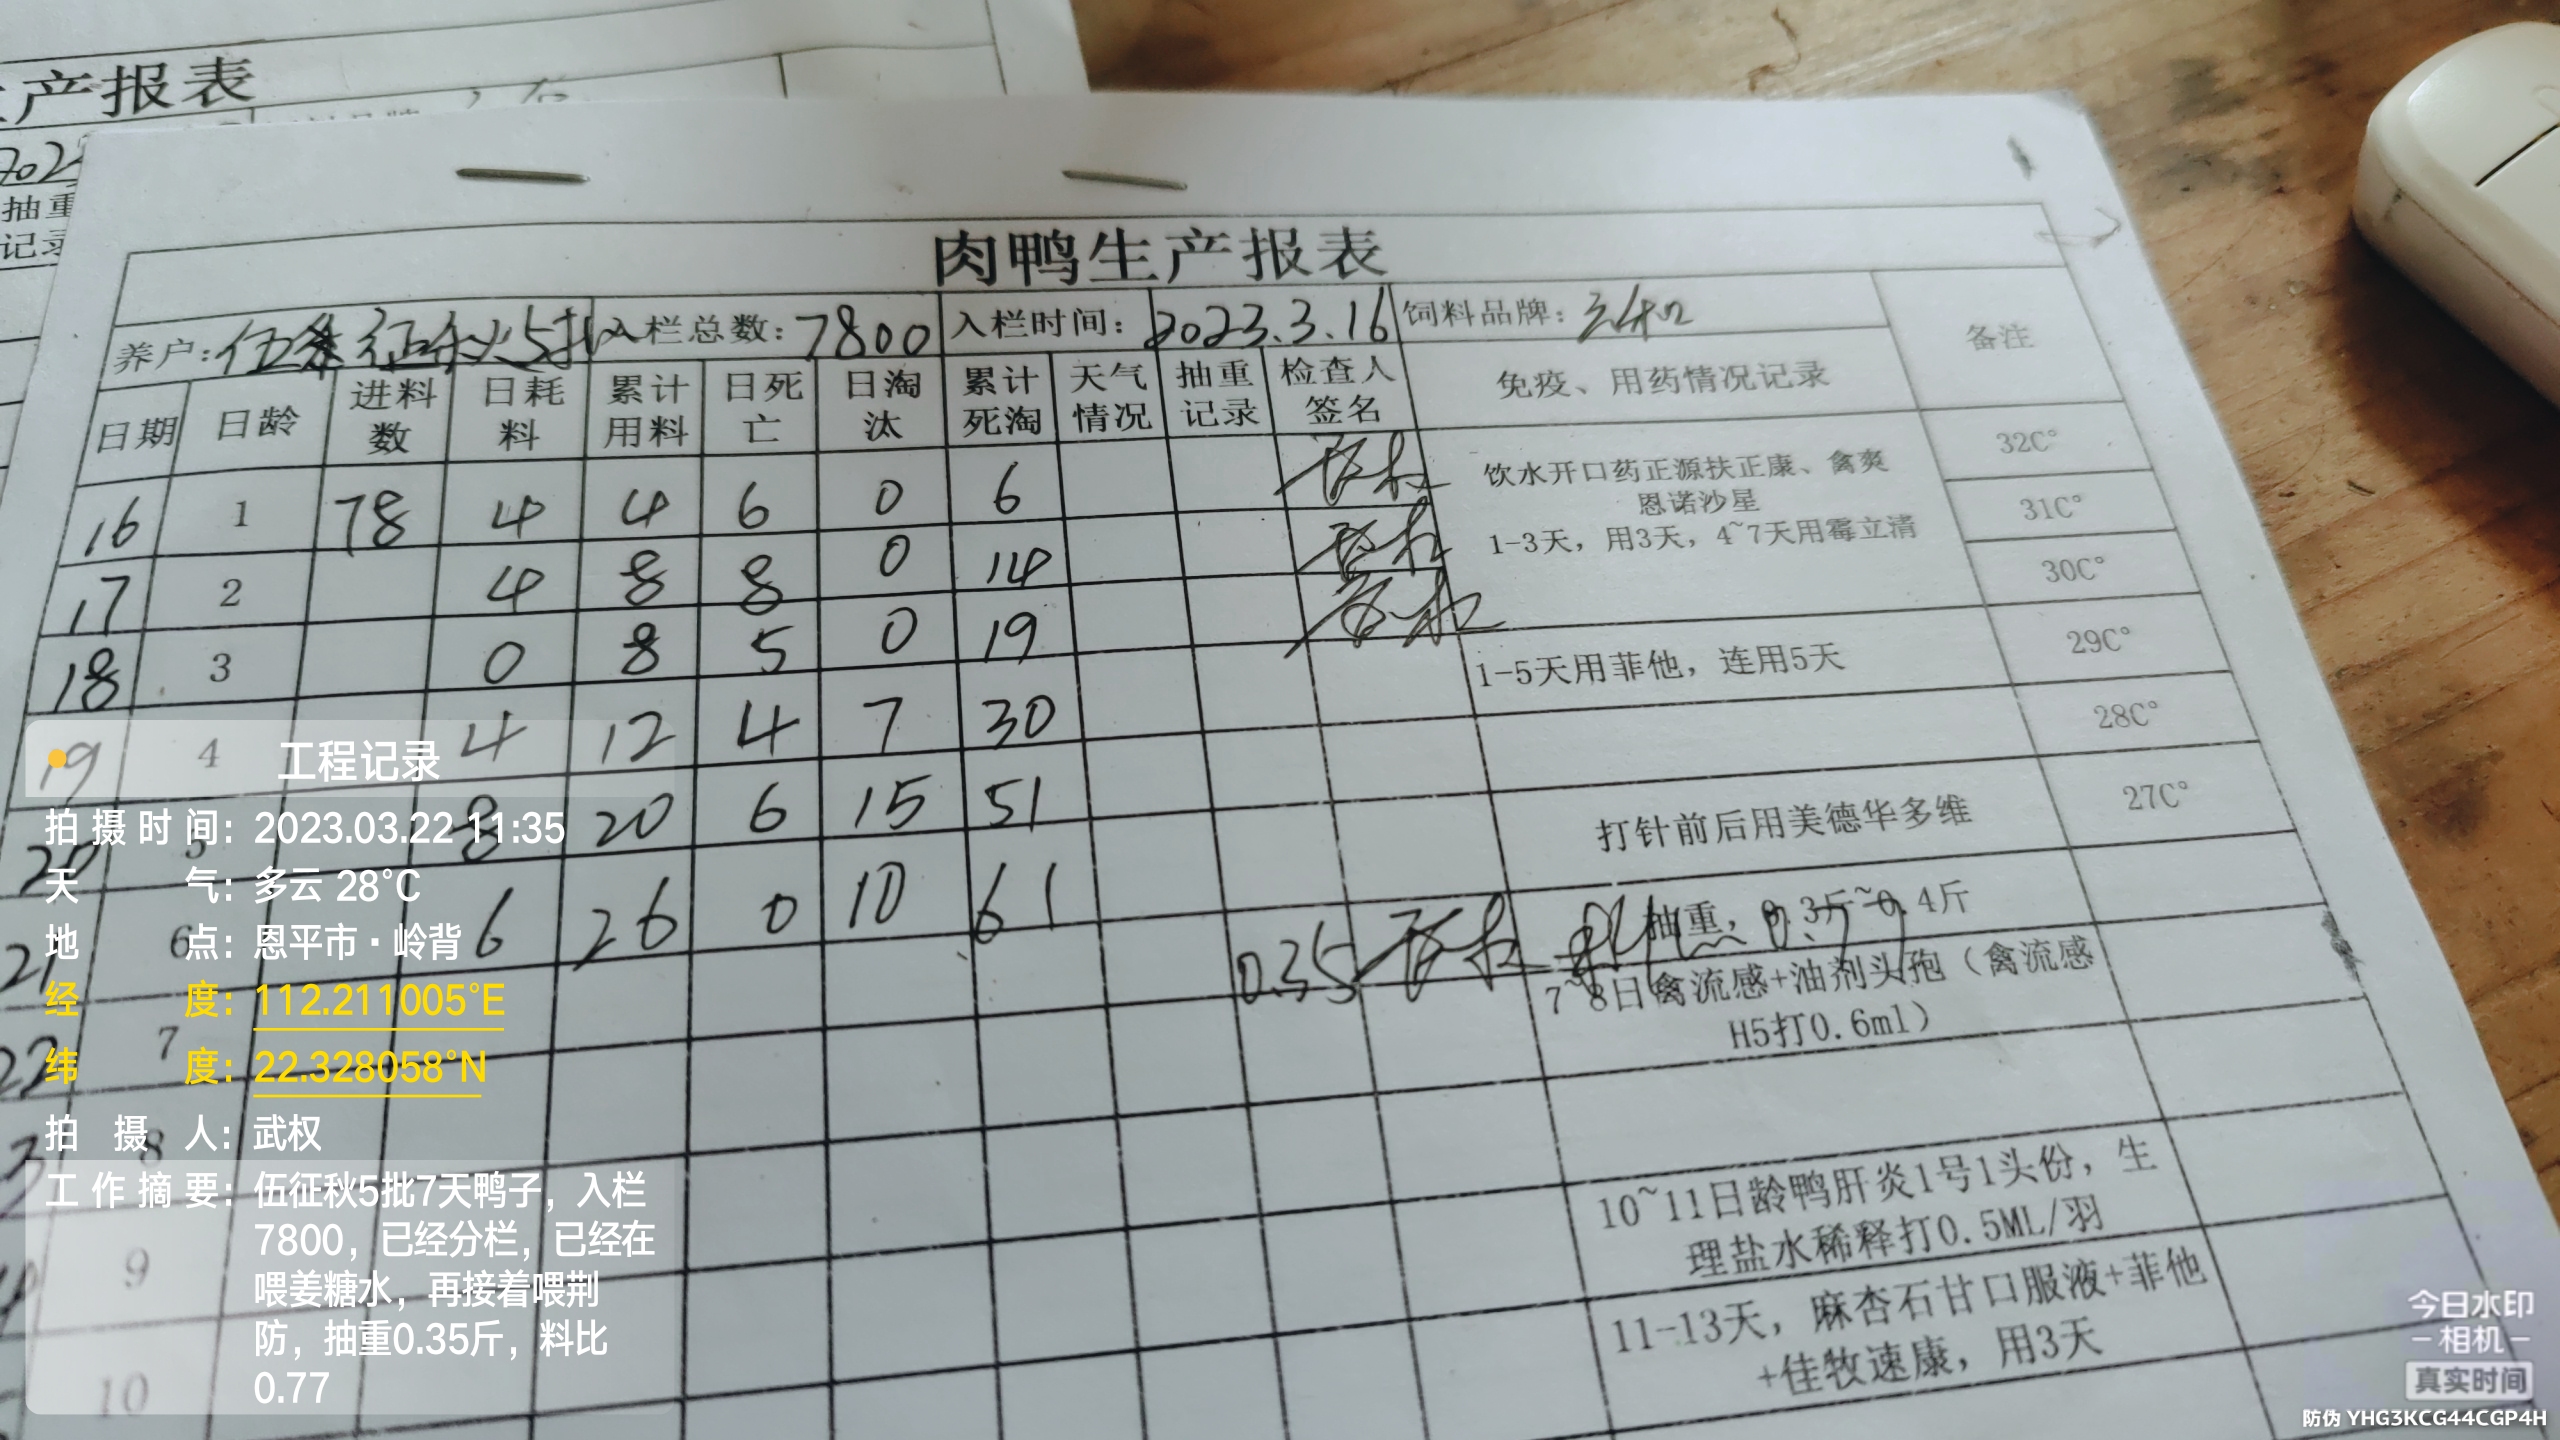 生产报表
202
抽重
记录
肉鸭生产报表
养户：伍征秋5批 入栏总数：7800 入栏时间：2023.3.16 饲料品牌： 备注
日期 日龄 进料数 日耗料 累计用料 日死亡 日淘汰 累计死淘 天气情况 抽重记录 检查人签名 免疫、用药情况记录
16 1 78 4 4 6 0 6 32C°
饮水开口药正源扶正康、禽爽
恩诺沙星
1-3天，用3天，4~7天用霉立清
17 2 4 8 8 0 14 31C°
18 3 0 8 5 0 19 30C°
19 4 4 12 4 7 30 1-5天用菲他，连用5天 29C°
20 5 8 20 6 15 51 28C°
21 6 6 26 0 10 61 打针前后用美德华多维 27C°
22 7 0.35 抽重，0.3斤~0.4斤
0.77
7~8日禽流感+油剂头孢（禽流感
H5打0.6ml）
8
9
10~11日龄鸭肝炎1号1头份，生
理盐水稀释打0.5ML/羽
10
11-13天，麻杏石甘口服液+菲他
+佳牧速康，用3天
工程记录
拍摄时间：2023.03.22 11:35
天气：多云 28°C
地点：恩平市·岭背
经度：112.211005°E
纬度：22.328058°N
拍摄人：武权
工作摘要：伍征秋5批7天鸭子，入栏
7800，已经分栏，已经在
喂姜糖水，再接着喂荆
防，抽重0.35斤，料比
0.77
今日水印
-相机-
真实时间
防伪 YHG3KCG44CGP4H